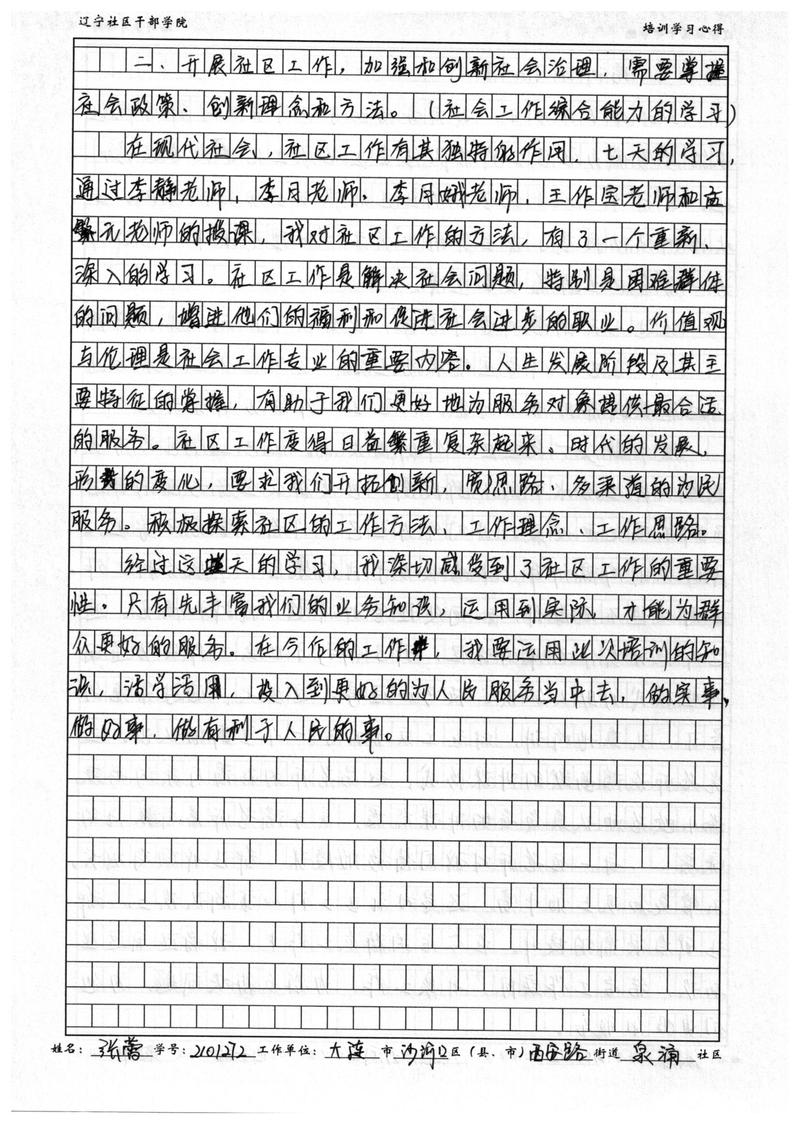 辽宁社区干部学院 培训学习心得
二、开展社区工作,加强和创新社会治理,需要掌握
社会政策、创新理念和方法。(社会工作综合能力的学习)
在现代社会,社区工作有其独特的作用,七天的学习,
通过李静老师,李月老师、李月娥老师,王作宝老师和孟
繁元老师的授课,我对社区工作的方法,有了一个重新、
深入的学习。社区工作是解决社会问题,特别是困难群体
的问题,增进他们的福利和促进社会进步的职业。价值观
与伦理是社会工作专业的重要内容。人生发展阶段及其主
要特征的掌握,有助于我们更好地为服务对象提供最合适
的服务。社区工作变得日益繁重复杂起来、时代的发展,
形势的变化,要求我们开拓创新,宽思路、多渠道的为民
服务。积极探索社区的工作方法、工作理念、工作思路。
经过这些天的学习,我深切感受到了社区工作的重要
性。只有先丰富我们的业务知识,运用到实际,才能为群
众更好的服务。在今后的工作中,我要运用此次培训的知
识,活学活用,投入到更好的为人民服务当中去,做实事,
做好事,做有利于人民的事。
姓名:张莺 学号:2101272 工作单位:大连市沙河口区(县、市)西安路街道泉涌社区